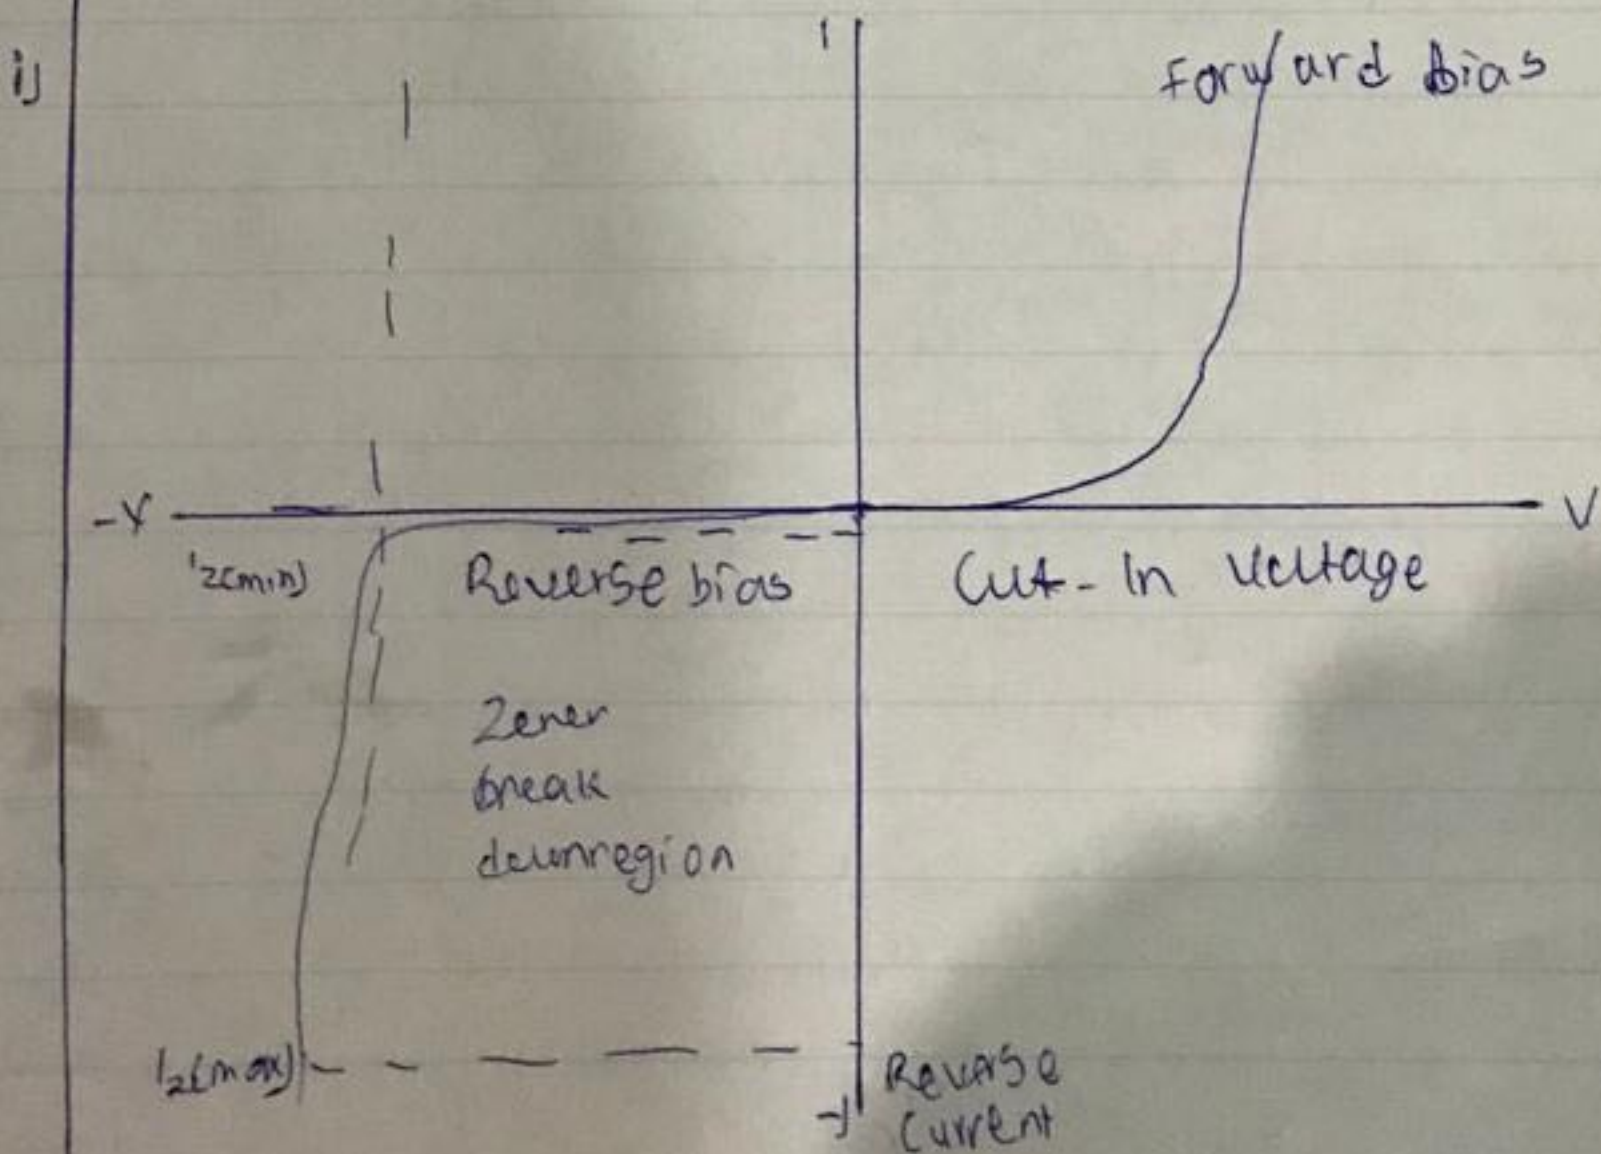 i)
I
Forward bias
-V
V
Iz(min)
Reverse bias
Cut-In Voltage
Zener
break
downregion
Iz(max)
Reverse
Current
-I